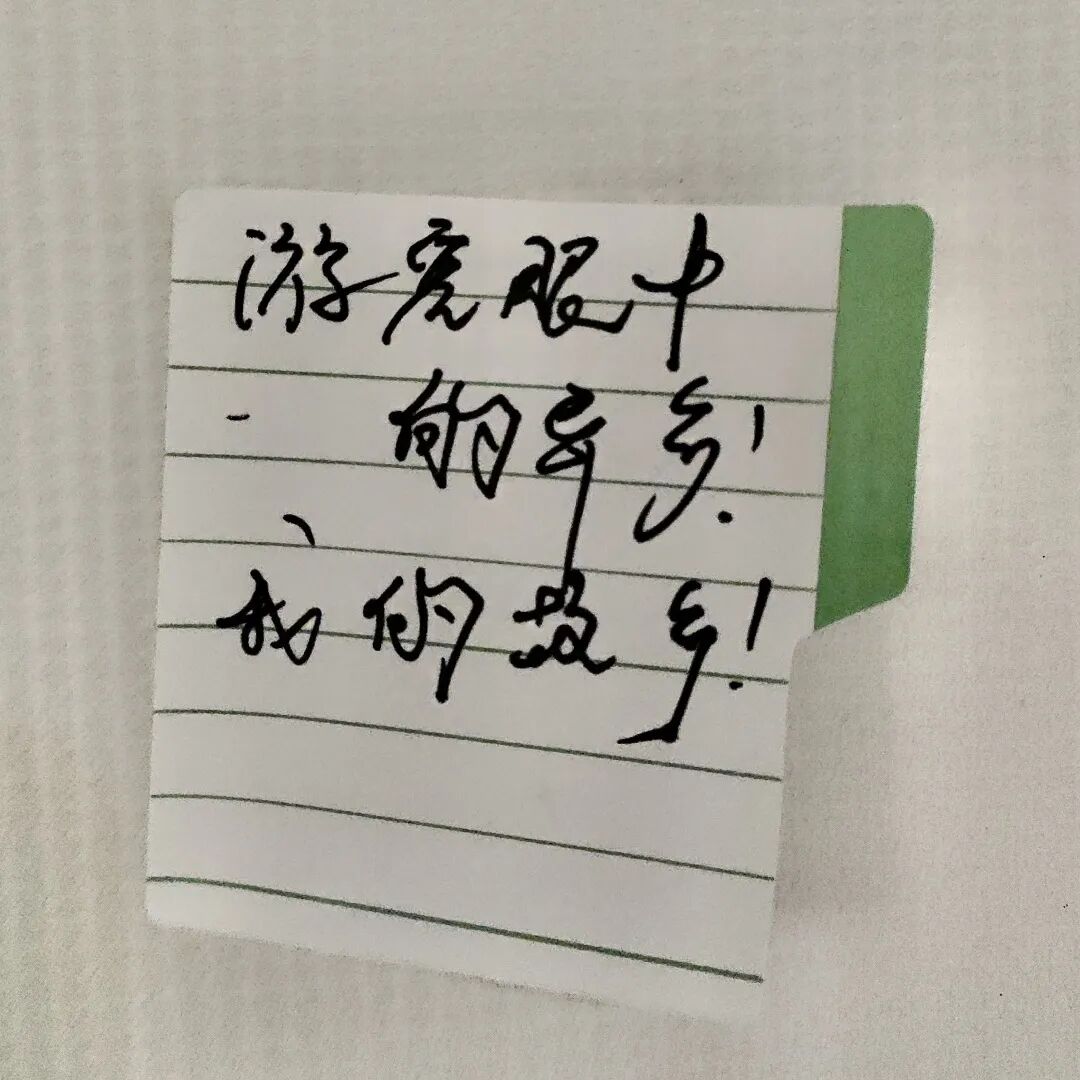 游客眼中
的异乡!
我的故乡!